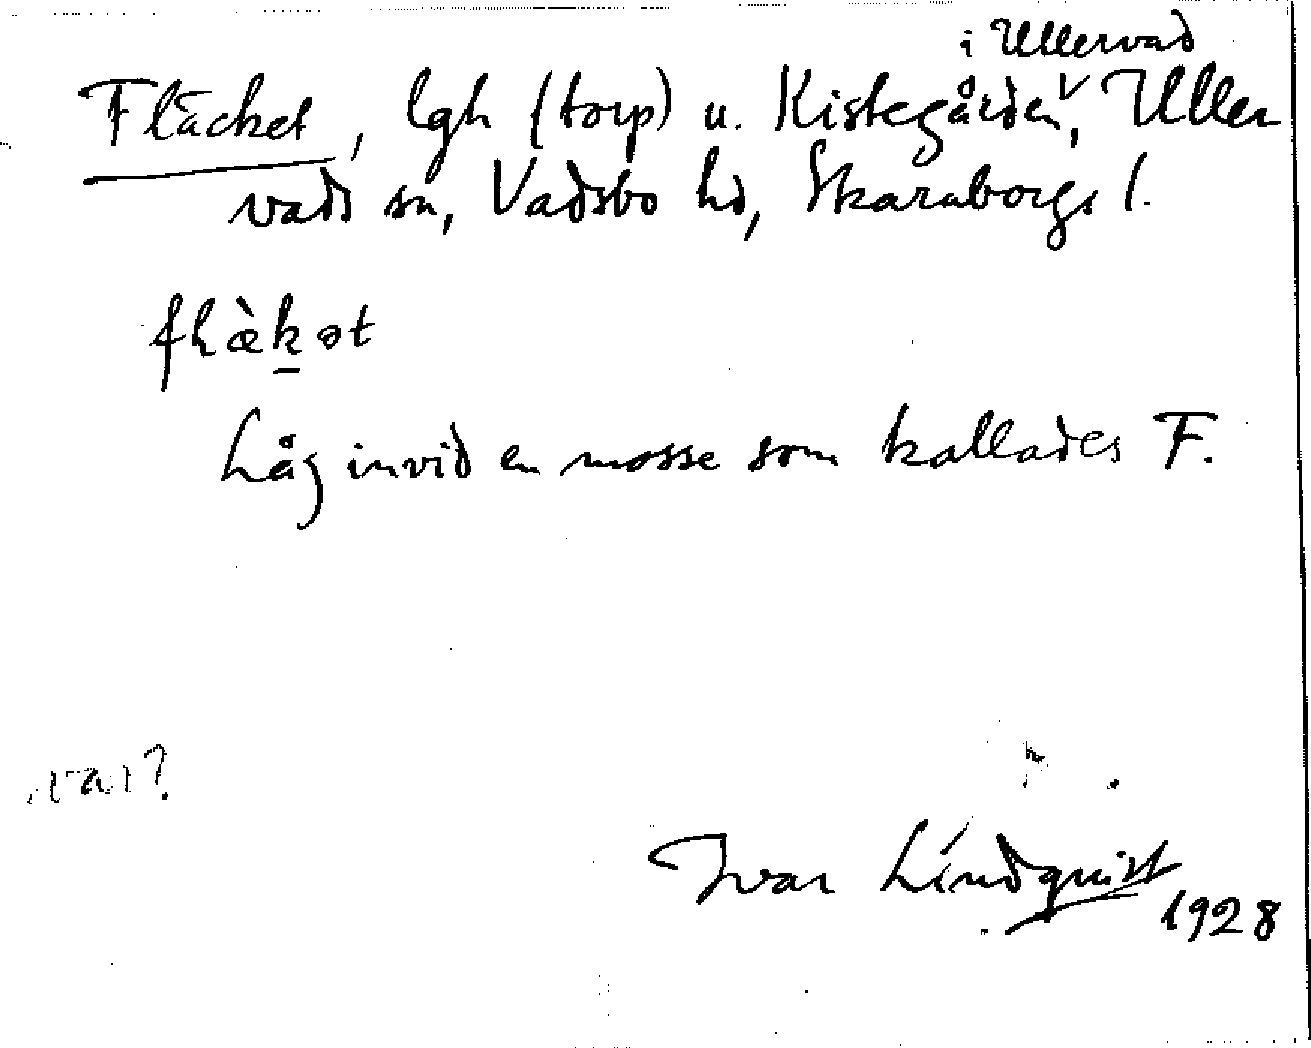 i Ullervad
Fläcket, lgh (torp) u. Kistegården, Uller
vads sn, Vadsbo hd, Skaraborgs l.
flæ̀k̲ət
Låg invid en mosse som kallades F.
var?
Ivar Lindquist
1928